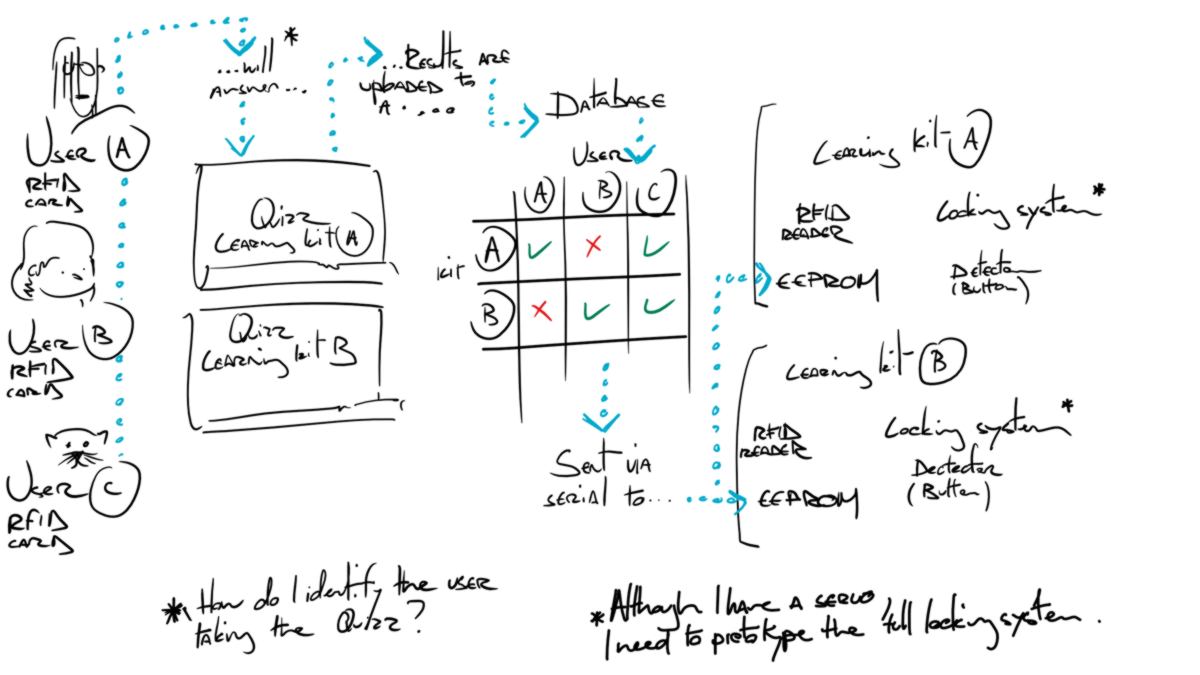 User A
RFID
CARD
User B
RFID
CARD
User C
RFID
CARD
...will *
Answer...
Quizz
Learning kit A
Quizz
Learning kit B
...Results are
uploaded to
a ....
Database
User
A B C
kit
A ✓ × ✓
B × ✓ ✓
Sent via
serial to...
Learning kit A
RFID
READER
Locking system*
EEPROM
Detector
(Button)
Learning kit B
RFID
READER
Locking system*
EEPROM
Dectector
(Button)
* How do I identify the user
taking the Quizz?
* Although I have a servo,
I need to prototype the full locking system.